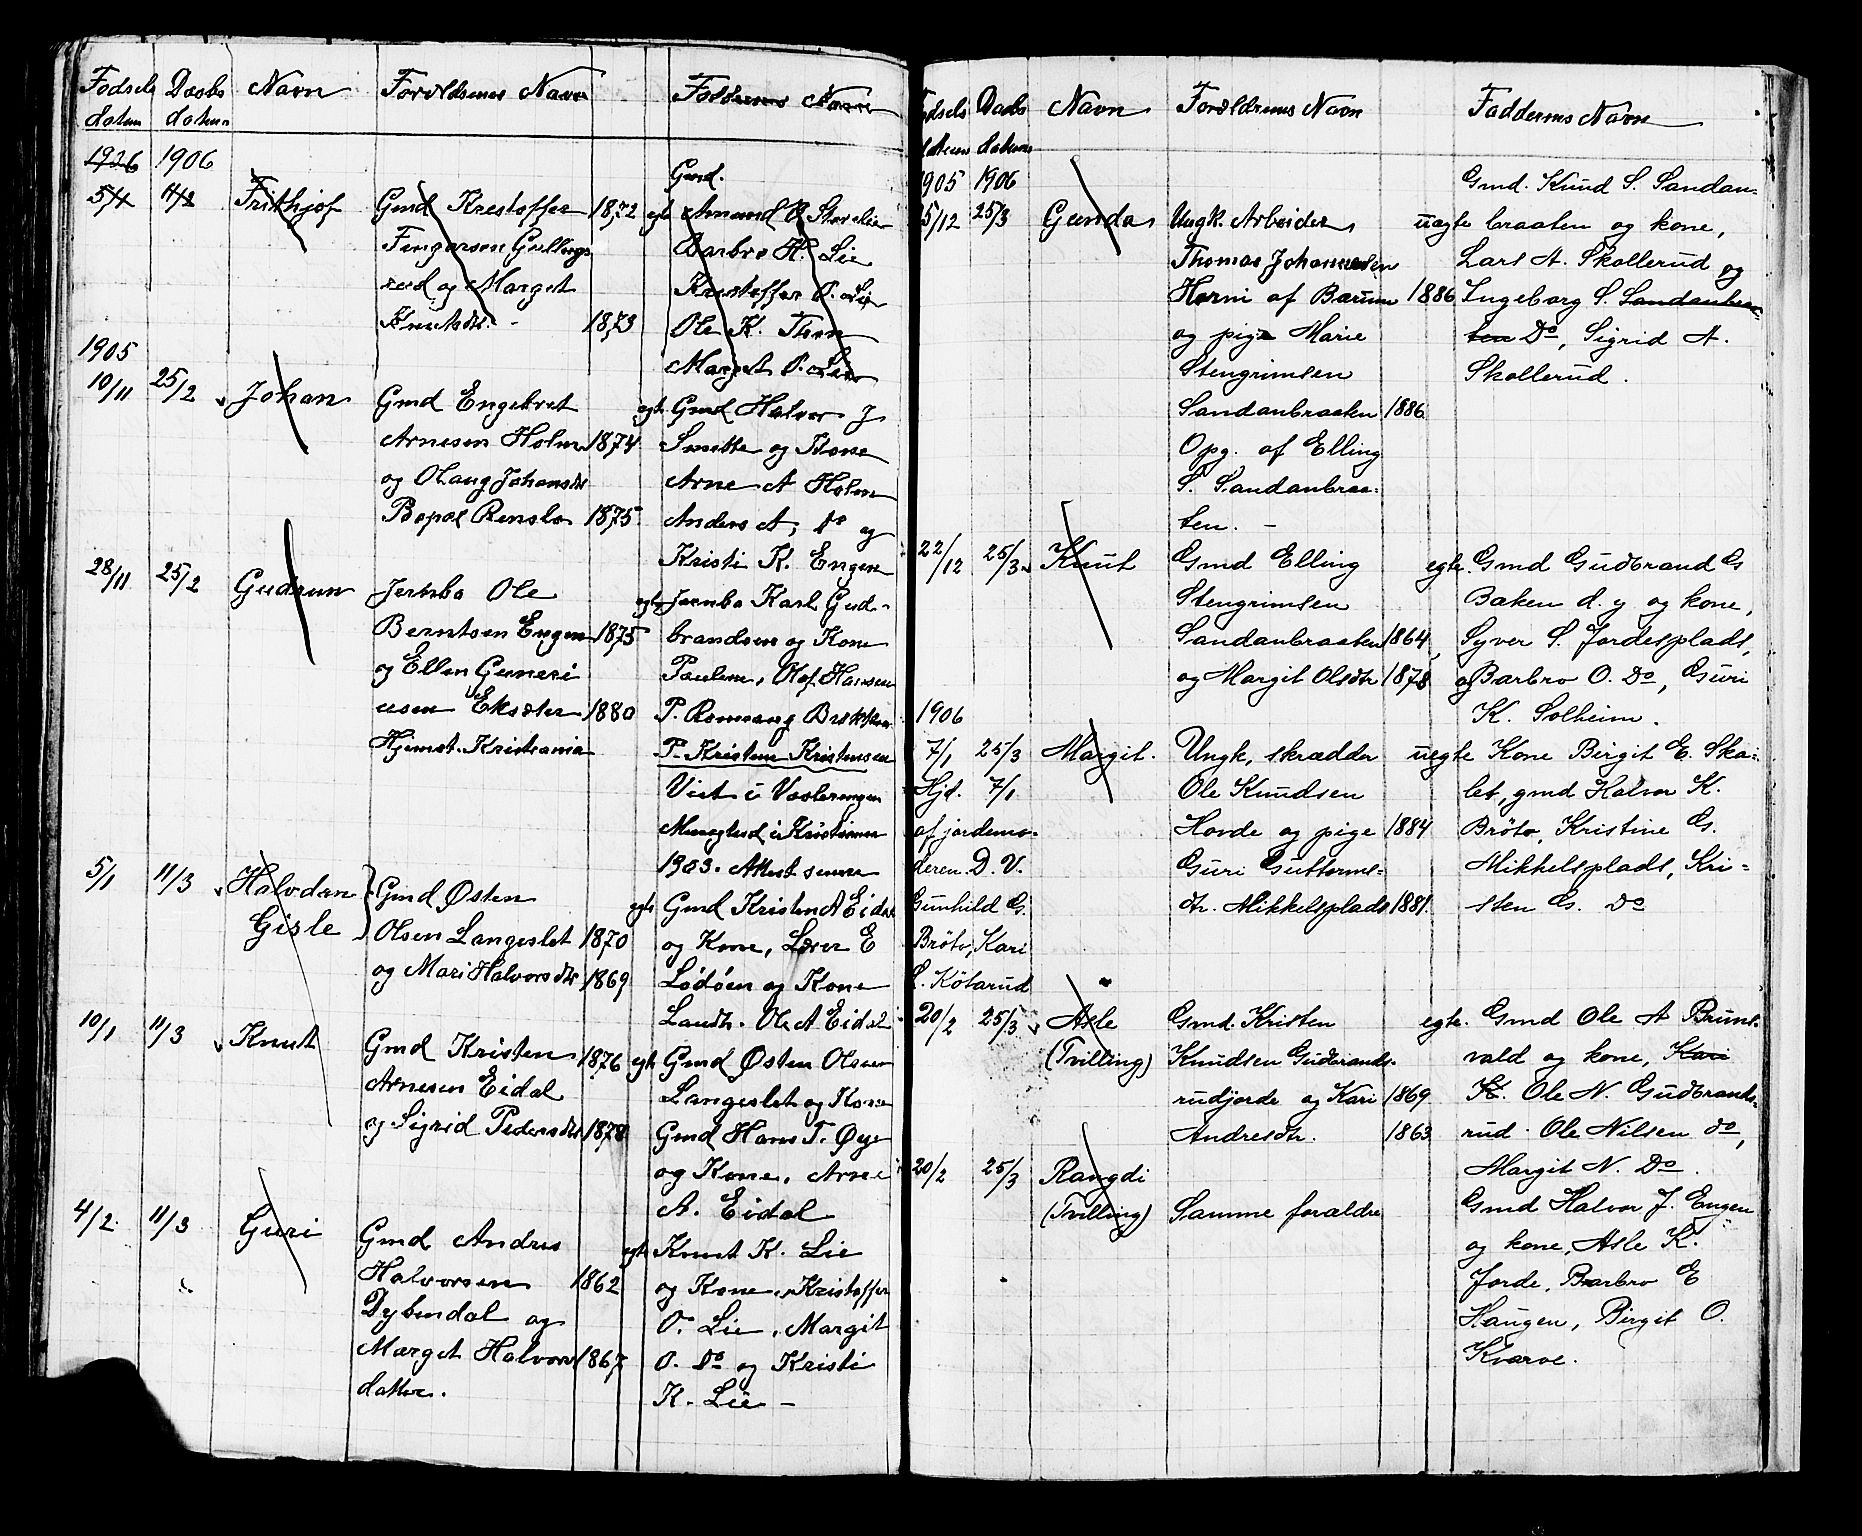 Fødsels Daabs Navn Forældrenes Navn Faddernes Navn
datum datum
1906 1906 Gmd.
5/1 11/2 Frithjof Gmd Krestoffer 1872 egte Amund O. Storelien
Fingarsen Gulbergs Barbro H. Lie
rud og Marget Krestoffer O. Lie
Knutsdtr. - 1873 Ole K. Thon
1905 Marget O. Lie
10/11 25/2 Johan Gmd Engebret egte Gmd Halvor J
Arnesen Holm 1874 Smette og Kone
og Olaug Johansdtr Arne A Holm
1875 Anders A, Do og
Kristi K. Engen
28/11 25/2 Gudrun Jernba Ole egte Jernba Karl Gud-
Berntsen Engen 1875 brandsen og Kone
og Ellen Gunneri Paulem, Olaf Hansen
usen 1880 P. Romnang
Hjemst. Kristiania P. Kristian Kristensen
Viet i Vaalerengen
Menighed i Kristiania
1903. Attest senere
5/1 11/3 Halvdan Gmd Østen egte Gmd Kristen A Eidal
Gisle Olsen Langeslet 1870 og Kone, Lærer E
og Mari Halvorsdtr 1869 Lødøen og Kone
Landh. Ole A Eidal
10/1 11/3 Knut Gmd Kristen 1876 egte Gmd Østen Olsen
Arnesen Eidal Langeslet og Kone
og Sigrid Pedersdtr 1878 Gmd Hans T. Øye
og Kone, Arne
A. Eidal
4/2 11/3 Guri Gmd Andres egte Knut K. Lie
Halvorsen 1862 og Kone, Kristoffer
Dybendal og O. Lie, Margit
Marget Halvors 1867 O. Do og Kristi
datter. K. Lie -
Fødsels Daabs Navn Forældrenes Navn Faddernes Navn
datum datum
1905 1906 Gmd. Knud S. Sandan-
5/12 25/3 Gunda Ungk. Arbeider uegte braaten og kone,
Thomas Johannesen Lars A. Skollerud og
Horni af Bærum 1886 Ingeborg S. Sandanbraa-
og pige Marie ten Do, Sigrid A.
Stengrimsen Skollerud.
Sandanbraaten 1886
Opg. af Elling
S. Sandanbraa-
ten. -
22/12 25/3 Knut Gmd Elling egte. Gmd Gudbrand G
Stengrimsen Baken d. y og kone,
Sandanbraaten 1864, Syver S. Jordesplads,
og Margit Olsdtr 1878 og Barbro O. Do, Guri
1906 K. Solheim.
7/1 25/3 Margit. Ungk. skrædder uegte Kone Birgit E. Ska-
Hjd. 7/1 Ole Knudsen let, gmd Halvor K.
af jordemo- Hovde og pige 1884 Brøto, Kristine G.
deren D. V. Guri Guttorms- Mikkelsplads, Kri-
Gunhild G. dtr. Mikkelsplads 1881. sten G. Do
Brøto, Kari
S. Kötarud
20/2 25/3 Asle Gmd. Kristen egte. Gmd Ole A Bruns-
(Tvilling) Knudsen Gudbrands- vald og kone, Kari
rudjorde og Kari 1869 K. Ole N. Gudbrands-
Andresdtr. 1863 rud. Ole Nilsen do,
20/2 25/3 Rangdi Margit N. Do.
(Tvilling) Samme forældre Gmd Halvor J. Engen
og kone, Asle K.
Jorde, Barbro E
Haugen, Birgit O.
Kvarve.